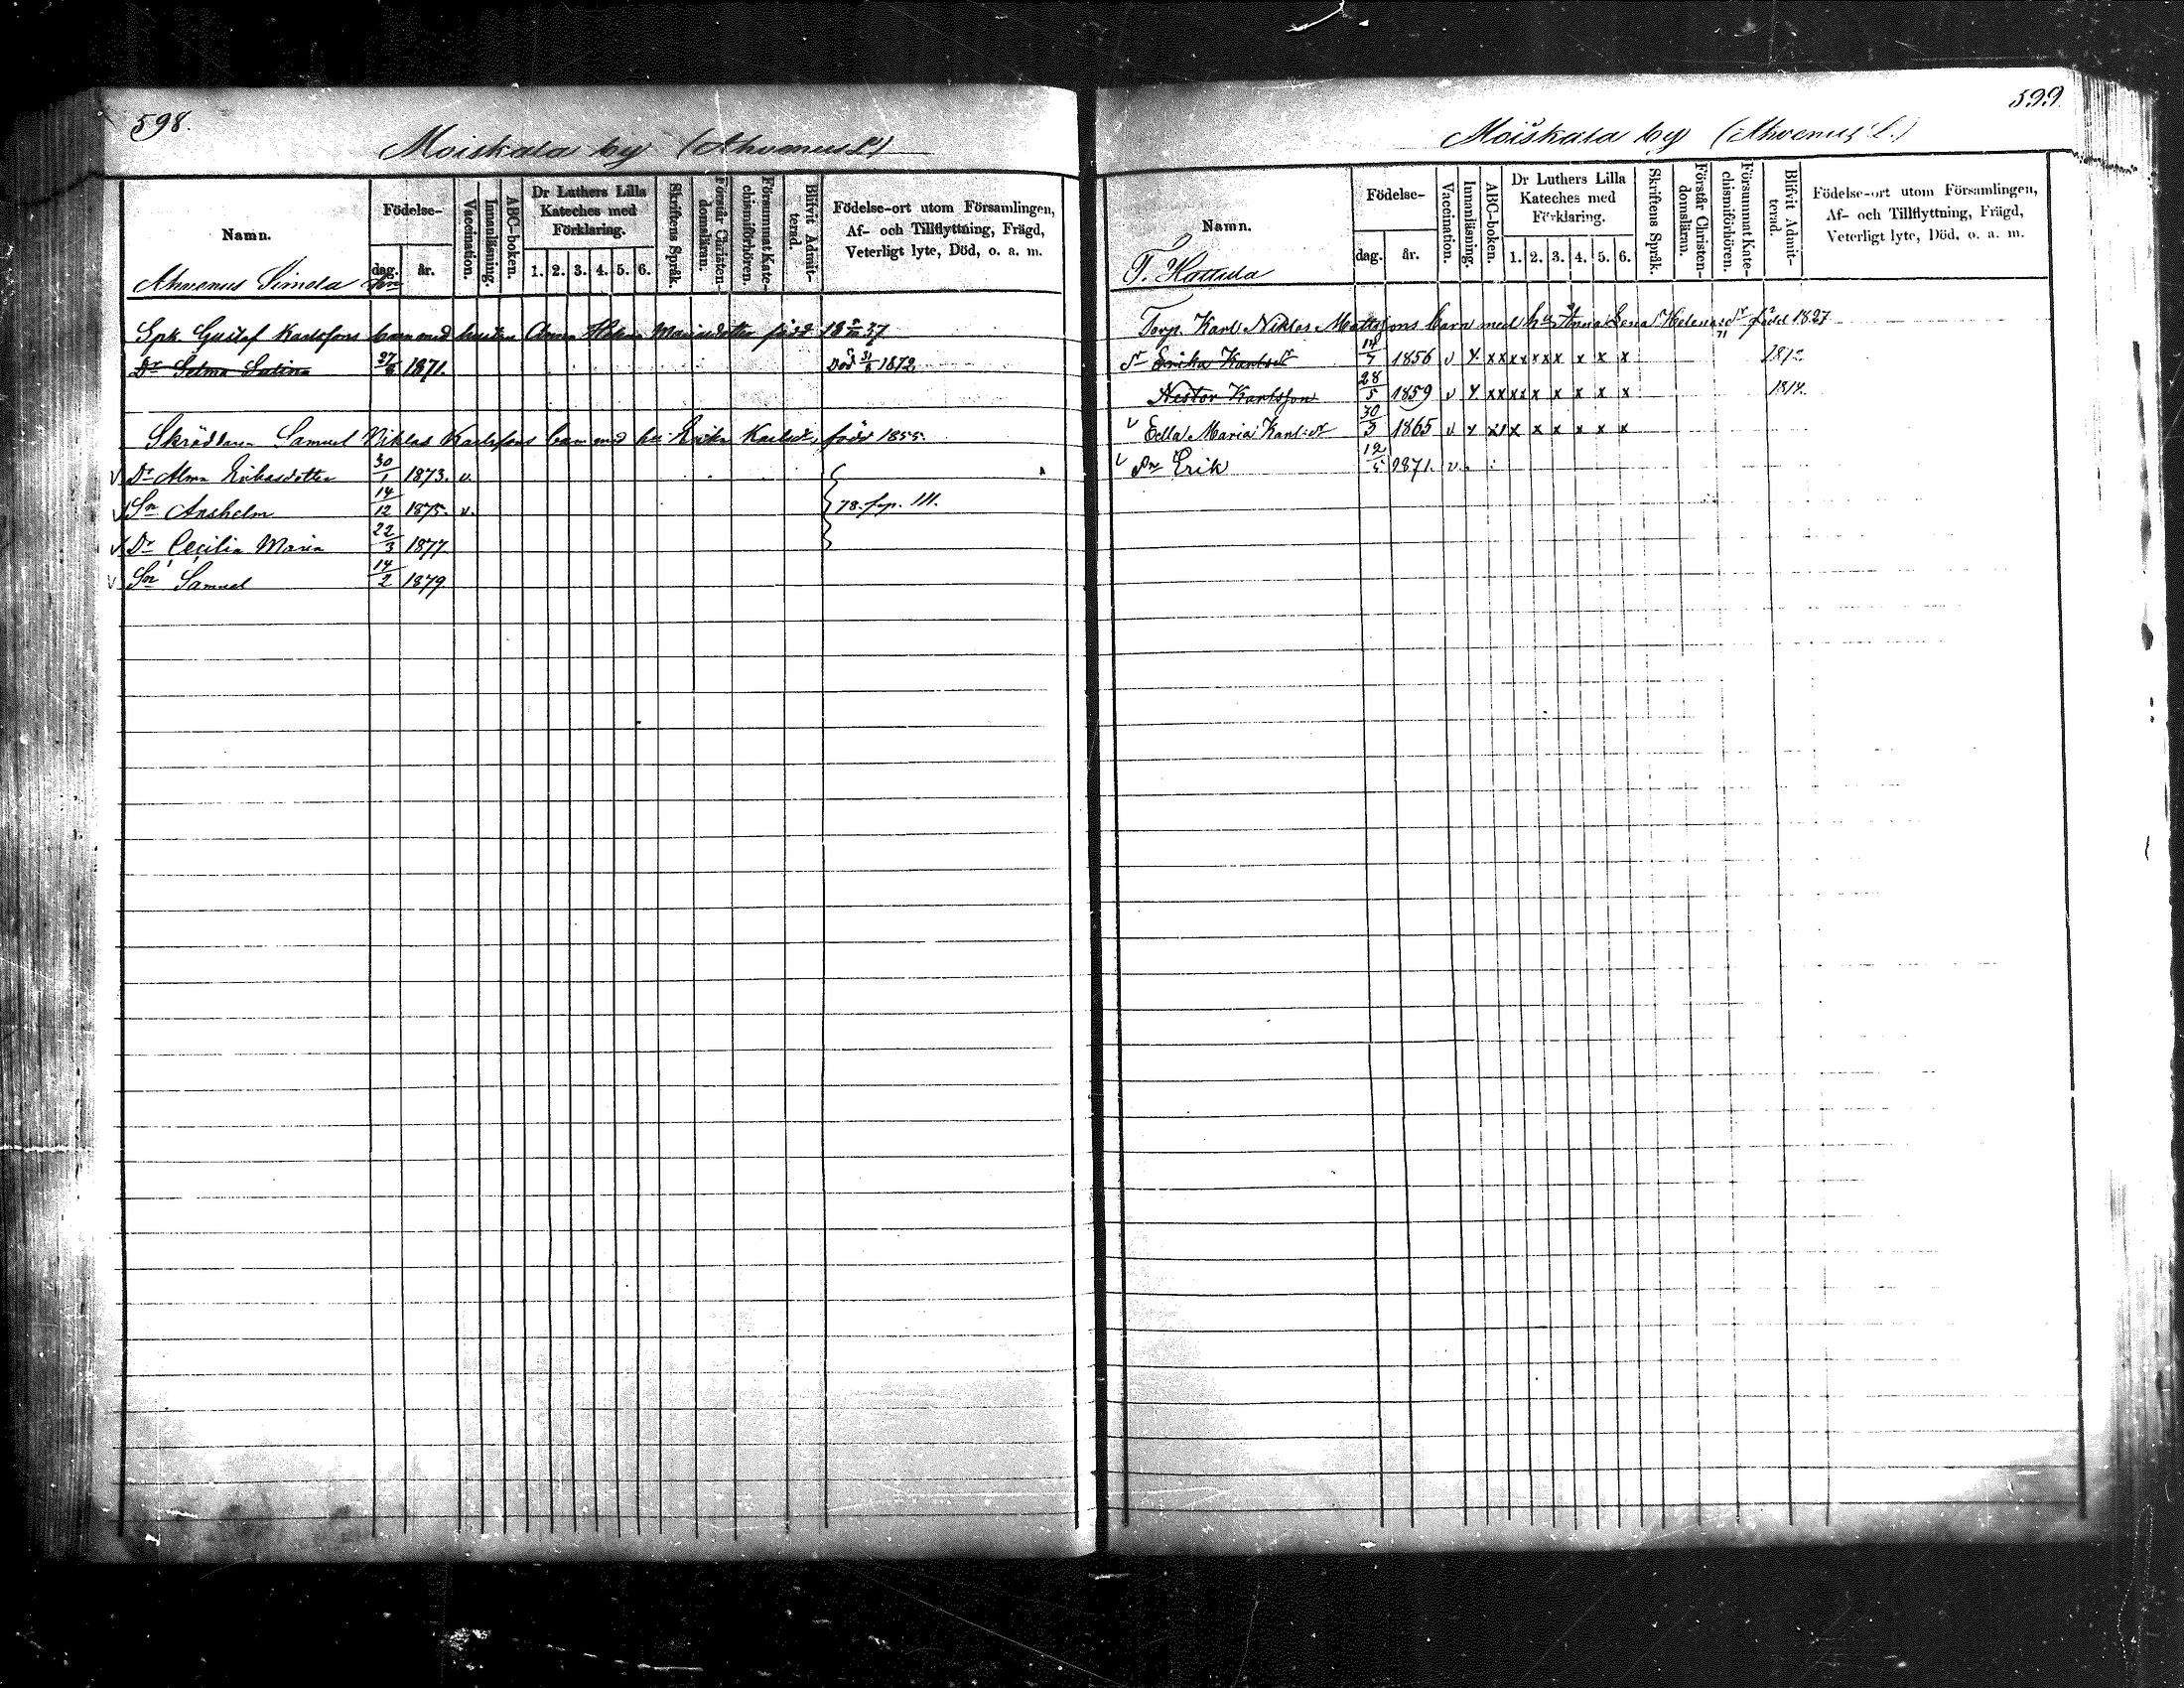 598.
Moiskala by (Ahvenus L.)
Namn.
Födelse-
dag.
år.
Vaccination.
Innanläsning.
ABC-boken.
Dr Luthers Lilla Kateches med Förklaring.
1. 2. 3. 4. 5. 6.
Skriftens Språk.
Förstår Christendomsläran.
Försummat Katechismiförhören.
Blifvit Admitterad.
Födelse-ort utom Församlingen,
Af- och Tillflyttning, Frägd,
Veterligt lyte, Död, o. a. m.
Ahvenus Simola
Spk. Gustaf Karlssons barn med hustru Anna Helena Mariasdotter född 1837
Dr Selma Salina 27/8 1871. Död 31/8 1872
Skräddaren Samuel Niklas Karlssons barn med hu: Erika Karlsdr, född 1855.
v Dr Alma Eriksdotter 30/1 1873. v.
v Sn Anshelm 14/12 1875. v. 78. p. 111.
v Dr Cecilia Maria 22/3 1877
v Sn Samuel 14/2 1879
599
Moiskala by (Ahvenus L.)
Namn.
Födelse-
dag.
år.
Vaccination.
Innanläsning.
ABC-boken.
Dr Luthers Lilla Kateches med Förklaring.
1. 2. 3. 4. 5. 6.
Skriftens Språk.
Förstår Christendomsläran.
Försummat Katechismiförhören.
Blifvit Admitterad.
Födelse-ort utom Församlingen,
Af- och Tillflyttning, Frägd,
Veterligt lyte, Död, o. a. m.
T. Hattula
Torp. Karl Niklas Mattssons barn med hu Anna Lena Helenasdr född 1827
dr Erika Karlsdr 14/7 1856 v x x x x x x x x x x
Nestor Karlsson 28/5 1859 v x x x x x x x x x x
v Edla Maria Karlsdr 30/3 1865 v x x x x x x x x x
v Sn Erik 12/5 1871. v.